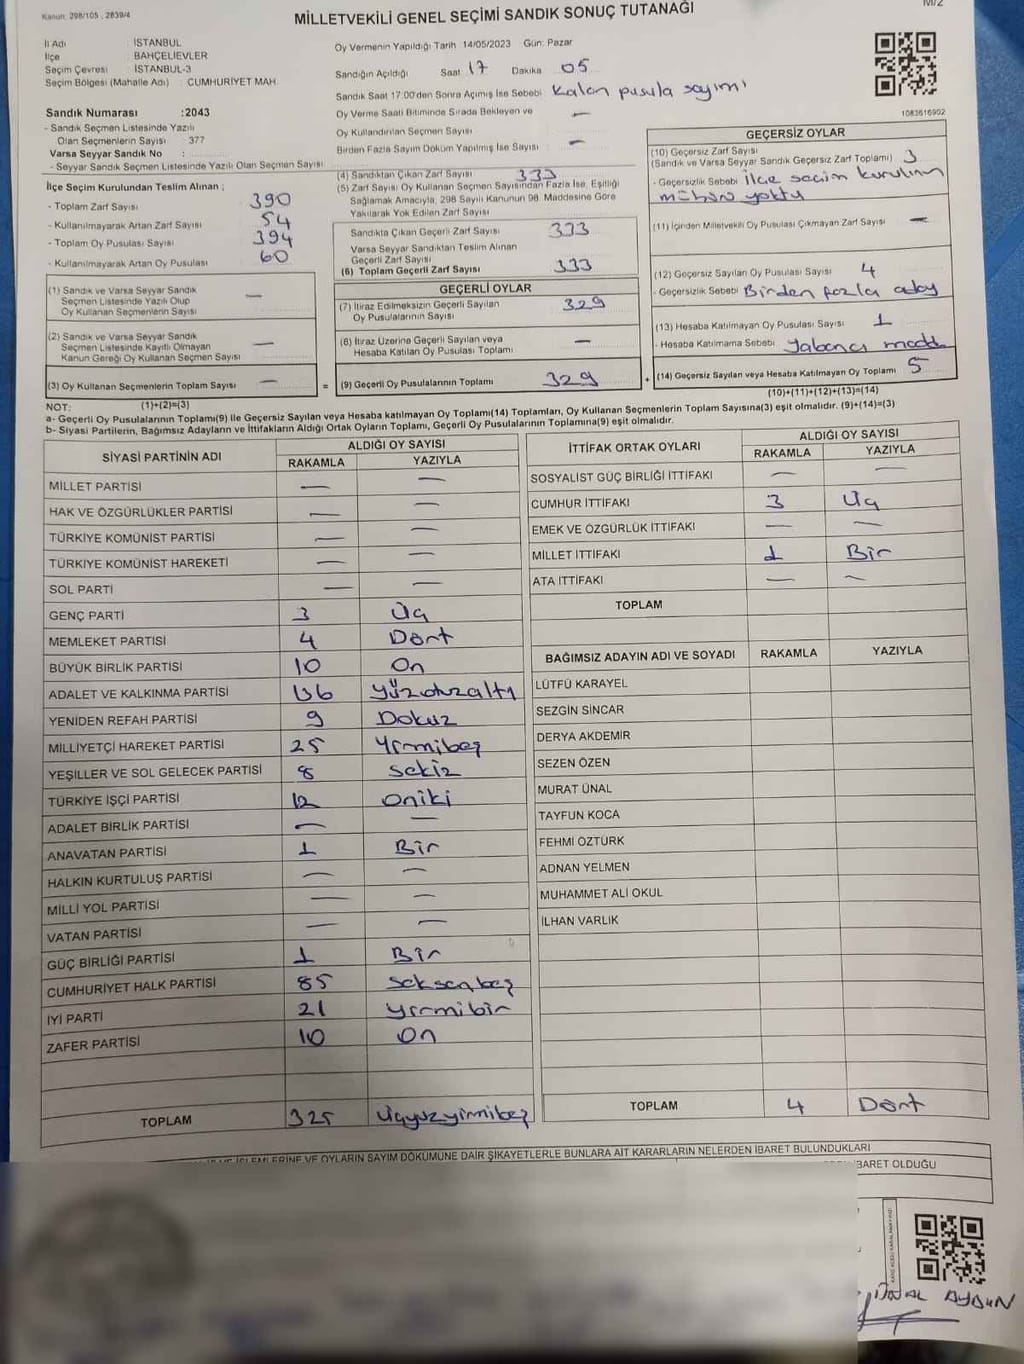 Kanun: 298/105 , 2839/4
MİLLETVEKİLİ GENEL SEÇİMİ SANDIK SONUÇ TUTANAĞI
İl Adı İSTANBUL
İlçe BAHÇELİEVLER
Seçim Çevresi İSTANBUL-3
Seçim Bölgesi (Mahalle Adı) : CUMHURİYET MAH.
Sandık Numarası :2043
- Sandık Seçmen Listesinde Yazılı
Olan Seçmenlerin Sayısı : 377
Varsa Seyyar Sandık No :
- Seyyar Sandık Seçmen Listesinde Yazılı Olan Seçmen Sayısı :
Oy Vermenin Yapıldığı Tarih 14/05/2023 Gün: Pazar
Sandığın Açıldığı Saat 17 Dakika 05
Sandık Saat 17:00'den Sonra Açımış İse Sebebi Kalan pusula sayımı
Oy Verme Saati Bitiminde Sırada Bekleyen ve
Oy Kullandırılan Seçmen Sayısı —
Birden Fazla Sayım Döküm Yapılmış İse Sayısı —
1083616902
İlçe Seçim Kurulundan Teslim Alınan ;
- Toplam Zarf Sayısı 390
- Kullanılmayarak Artan Zarf Sayısı 54
- Toplam Oy Pusulası Sayısı 394
- Kullanılmayarak Artan Oy Pusulası 60
(1) Sandık ve Varsa Seyyar Sandık
Seçmen Listesinde Yazılı Olup
Oy Kullanan Seçmenlerin Sayısı —
(2) Sandık ve Varsa Seyyar Sandık
Seçmen Listesinde Kayıtlı Olmayan
Kanun Gereği Oy Kullanan Seçmen Sayısı —
(3) Oy Kullanan Seçmenlerin Toplam Sayısı —
(1)+(2)=(3)
(4) Sandıktan Çıkan Zarf Sayısı 333
(5) Zarf Sayısı Oy Kullanan Seçmen Sayısından Fazla İse, Eşitliği
Sağlamak Amacıyla, 298 Sayılı Kanunun 98. Maddesine Göre
Yakılarak Yok Edilen Zarf Sayısı
Sandıkta Çıkan Geçerli Zarf Sayısı 333
Varsa Seyyar Sandıktan Teslim Alınan
Geçerli Zarf Sayısı
(6) Toplam Geçerli Zarf Sayısı 333
GEÇERLİ OYLAR
(7) İtiraz Edilmeksizin Geçerli Sayılan
Oy Pusulalarının Sayısı 329
(8) İtiraz Üzerine Geçerli Sayılan veya
Hesaba Katılan Oy Pusulası Toplamı —
= (9) Geçerli Oy Pusulalarının Toplamı 329 +
GEÇERSİZ OYLAR
(10) Geçersiz Zarf Sayısı
(Sandık ve Varsa Seyyar Sandık Geçersiz Zarf Toplamı) 3
- Geçersizlik Sebebi İlçe seçim kurulının
mührü yoktu
(11) İçinden Milletvekili Oy Pusulası Çıkmayan Zarf Sayısı —
(12) Geçersiz Sayılan Oy Pusulası Sayısı 4
- Geçersizlik Sebebi Birden fazla aday
(13) Hesaba Katılmayan Oy Pusulası Sayısı 1
- Hesaba Katılmama Sebebi Yabancı madde
(14) Geçersiz Sayılan veya Hesaba Katılmayan Oy Toplamı 5
(10)+(11)+(12)+(13)=(14)
NOT:
a- Geçerli Oy Pusulalarının Toplamı(9) ile Geçersiz Sayılan veya Hesaba katılmayan Oy Toplamı(14) Toplamları, Oy Kullanan Seçmenlerin Toplam Sayısına(3) eşit olmalıdır. (9)+(14)=(3)
b- Siyasi Partilerin, Bağımsız Adayların ve İttifakların Aldığı Ortak Oyların Toplamı, Geçerli Oy Pusulalarının Toplamına(9) eşit olmalıdır.
SİYASİ PARTİNİN ADI ALDIĞI OY SAYISI
RAKAMLA YAZIYLA
MİLLET PARTİSİ — —
HAK VE ÖZGÜRLÜKLER PARTİSİ — —
TÜRKİYE KOMÜNİST PARTİSİ — —
TÜRKİYE KOMÜNİST HAREKETİ — —
SOL PARTİ — —
GENÇ PARTİ 3 Üç
MEMLEKET PARTİSİ 4 Dört
BÜYÜK BİRLİK PARTİSİ 10 On
ADALET VE KALKINMA PARTİSİ 136 Yüzotuzaltı
YENİDEN REFAH PARTİSİ 9 Dokuz
MİLLİYETÇİ HAREKET PARTİSİ 25 Yirmibeş
YEŞİLLER VE SOL GELECEK PARTİSİ 8 Sekiz
TÜRKİYE İŞÇİ PARTİSİ 12 Oniki
ADALET BİRLİK PARTİSİ — —
ANAVATAN PARTİSİ 1 Bir
HALKIN KURTULUŞ PARTİSİ — —
MİLLİ YOL PARTİSİ — —
VATAN PARTİSİ — —
GÜÇ BİRLİĞİ PARTİSİ 1 Bir
CUMHURİYET HALK PARTİSİ 85 Seksenbeş
İYİ PARTİ 21 Yirmibir
ZAFER PARTİSİ 10 On
TOPLAM 325 Üçyüzyirmibeş
İTTİFAK ORTAK OYLARI ALDIĞI OY SAYISI
RAKAMLA YAZIYLA
SOSYALİST GÜÇ BİRLİĞİ İTTİFAKI — —
CUMHUR İTTİFAKI 3 Üç
EMEK VE ÖZGÜRLÜK İTTİFAKI — —
MİLLET İTTİFAKI 1 Bir
ATA İTTİFAKI — —
TOPLAM
BAĞIMSIZ ADAYIN ADI VE SOYADI RAKAMLA YAZIYLA
LÜTFÜ KARAYEL
SEZGİN SİNCAR
DERYA AKDEMİR
SEZEN ÖZEN
MURAT ÜNAL
TAYFUN KOCA
FEHMİ ÖZTÜRK
ADNAN YELMEN
MUHAMMET ALİ OKUL
İLHAN VARLIK
TOPLAM 4 Dört
İŞLEMLERİNE VE OYLARIN SAYIM DÖKÜMÜNE DAİR ŞİKAYETLERLE BUNLARA AİT KARARLARIN NELERDEN İBARET BULUNDUKLARI
İBARET OLDUĞU
AYDIN